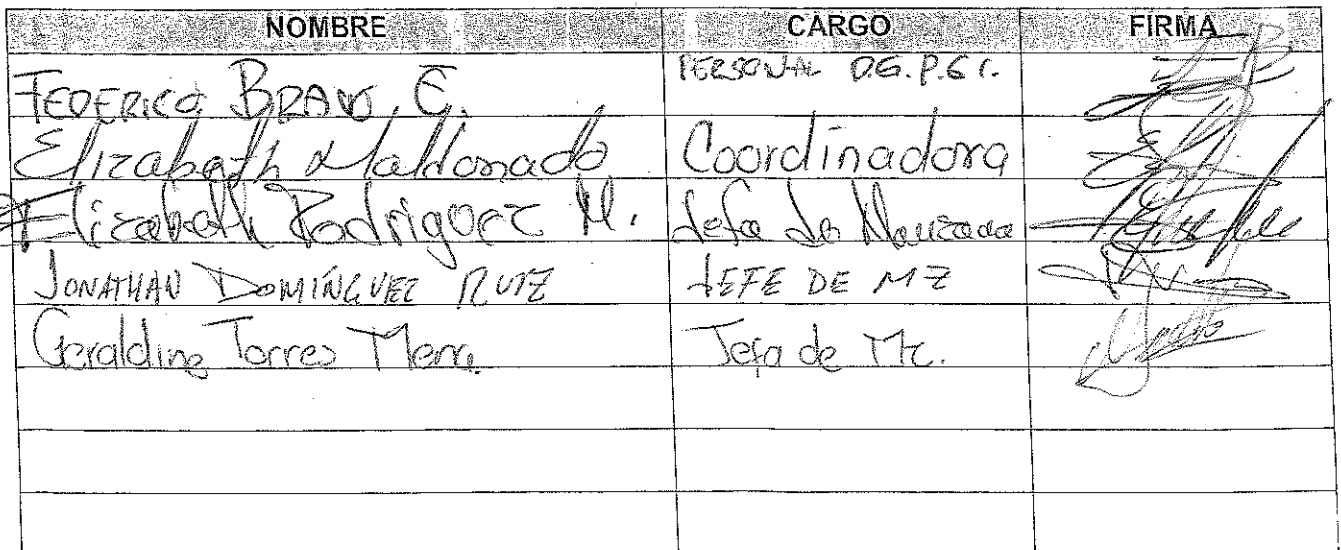 NOMBRE CARGO FIRMA
FEDERICO BRAVO E. PERSONAL D.G.P.G I.
Elizabeth Maldonado Coordinadora
Elizabeth Rodriguez M. Jefa de Manzana
JONATHAN DOMÍNGUEZ RUIZ JEFE DE MZ
Geraldine Torres Mena Jefa de Mz.